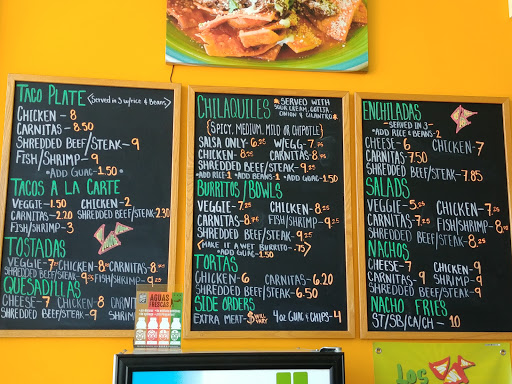 TACO PLATE (SERVED IN 3 W/RICE & BEANS)
CHICKEN - 8
CARNITAS - 8.50
SHREDDED BEEF/STEAK - 9
FISH/SHRIMP - 9
*ADD GUAC - 1.50*
TACOS A LA CARTE
VEGGIE - 1.50 CHICKEN - 2
CARNITAS - 2.20 SHREDDED BEEF/STEAK - 2.30
FISH/SHRIMP - 3
TOSTADAS
VEGGIE - 7 CHICKEN - 8 CARNITAS - 8
SHREDDED BEEF/STEAK - 9 FISH/SHRIMP - 9
QUESADILLAS
CHEESE - 7 CHICKEN - 8 CARNITAS
SHREDDED BEEF/STEAK - 9 SHRIMP
CHILAQUILES *SERVED WITH SOUR CREAM, COTIJA, ONION & CILANTRO*
{SPICY, MEDIUM, MILD OR CHIPOTLE}
SALSA ONLY - 6.95 W/EGG - 7.75
CHICKEN - 8.25 CARNITAS - 8.75
SHREDDED BEEF/STEAK - 9.25
*ADD RICE - 1 *ADD BEANS - 1 *ADD GUAC - 1.50
BURRITOS/BOWLS
VEGGIE - 7.25 CHICKEN - 8.25
CARNITAS - 8.75 FISH/SHRIMP - 9.25
SHREDDED BEEF/STEAK - 9.25
(MAKE IT A WET BURRITO - .75)
*ADD GUAC - 1.50
TORTAS
CHICKEN - 6 CARNITAS - 6.20
SHREDDED BEEF/STEAK - 6.50
SIDE ORDERS
EXTRA MEAT - $ WILL VARY 4oz GUAC & CHIPS - 4
ENCHILADAS
- SERVED IN 3 -
*ADD RICE & BEANS - 2
CHEESE - 6 CHICKEN - 7
CARNITAS - 7.50
SHREDDED BEEF/STEAK - 7.85
SALADS
VEGGIE - 5.25 CHICKEN - 7.25
CARNITAS - 7.75 FISH/SHRIMP - 8
SHREDDED BEEF/STEAK - 8.25
NACHOS
CHEESE - 7 CHICKEN - 9
CARNITAS - 9 SHRIMP - 9
SHREDDED BEEF/STEAK - 9
NACHO FRIES
ST/SB/CA/CH - 10
AGUAS FRESCAS
Los